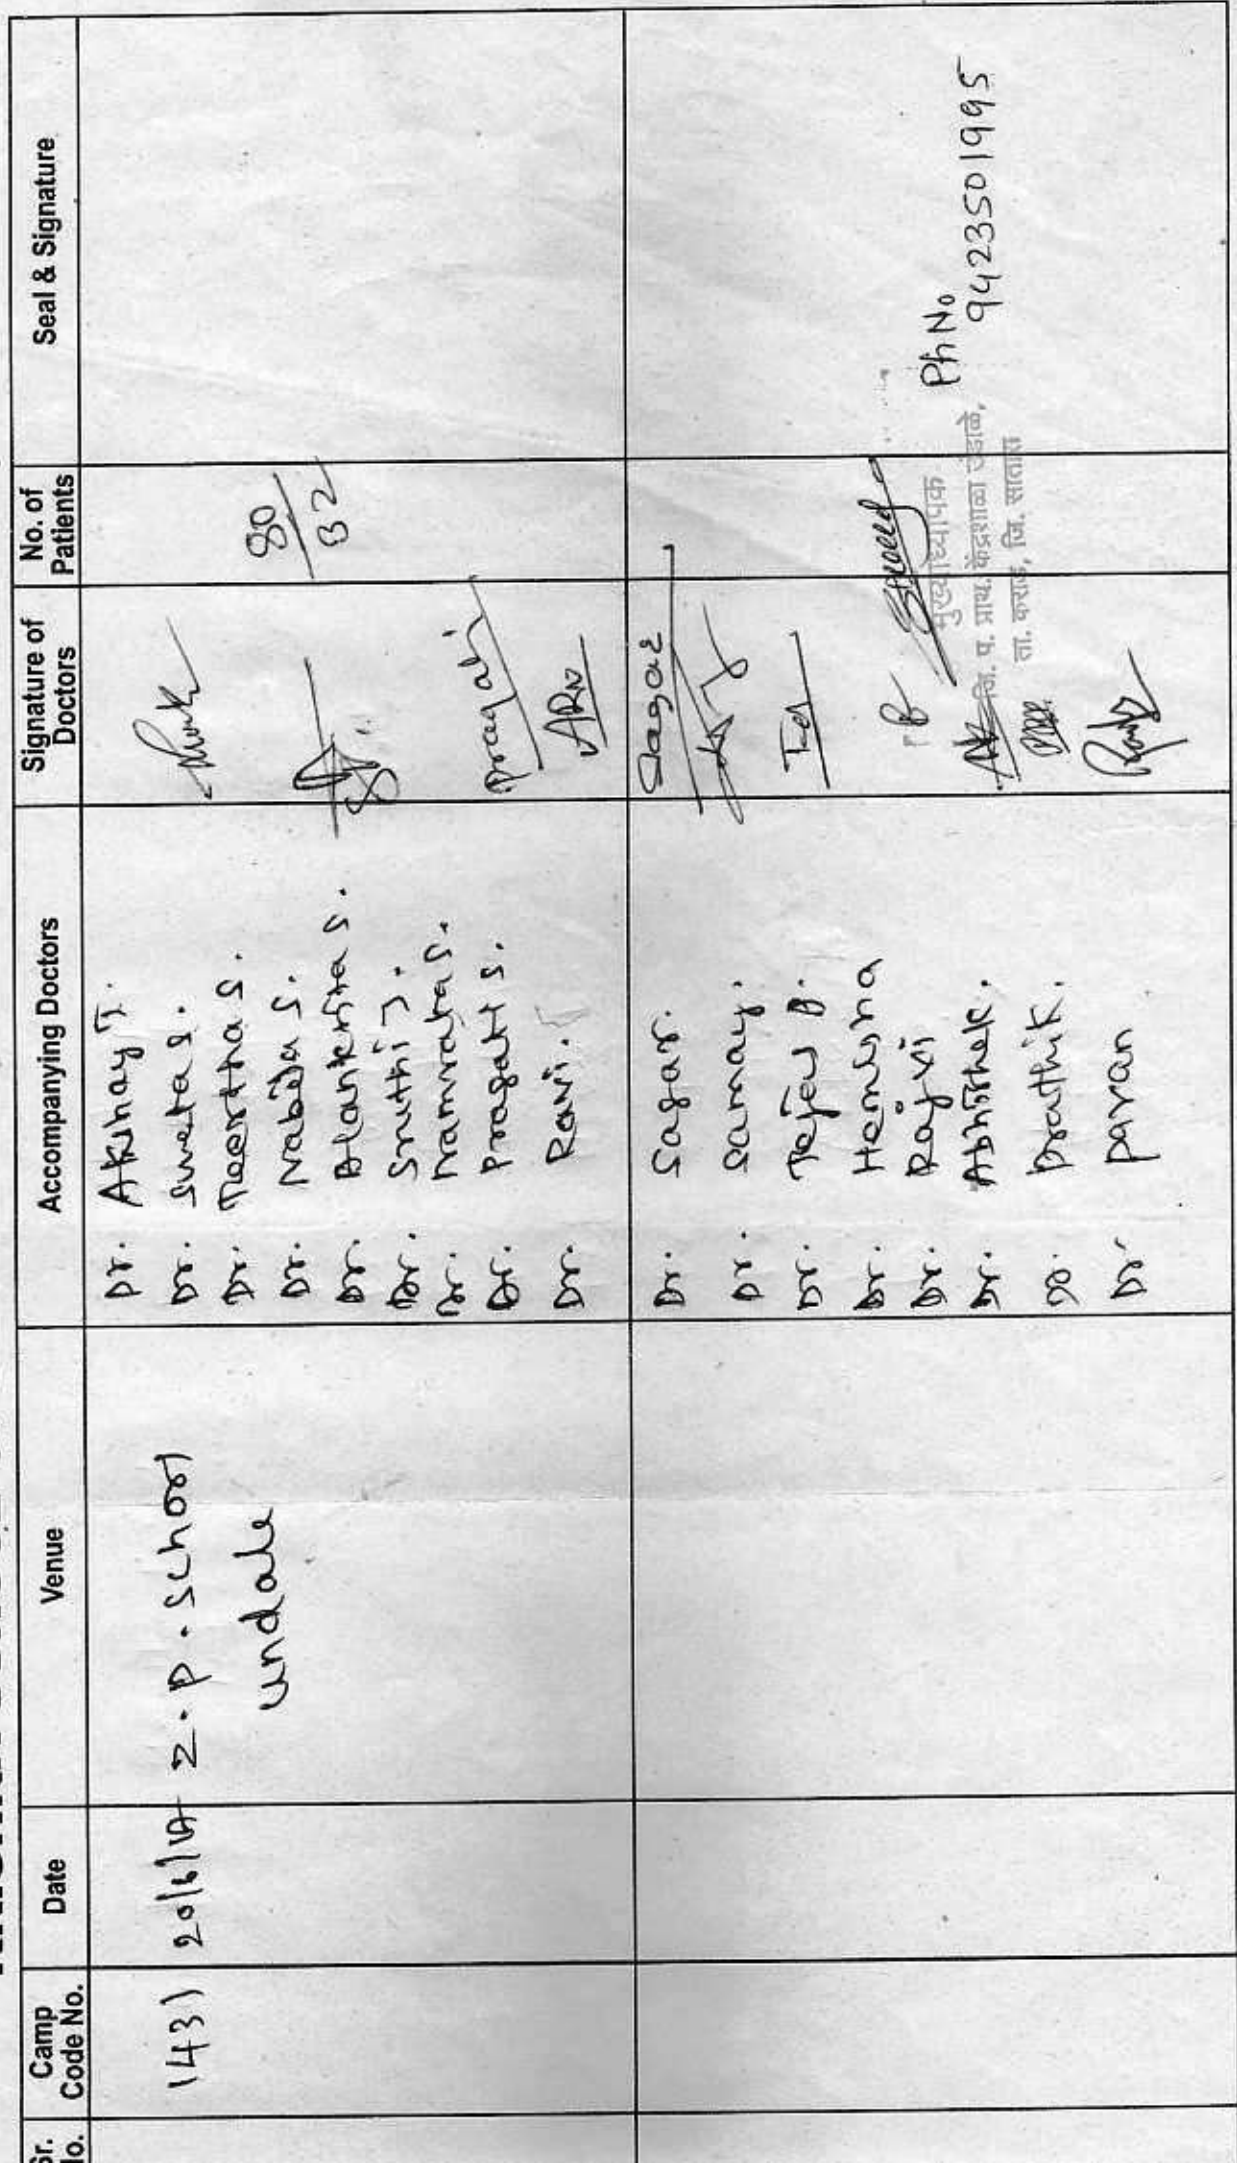 Sr. No.
Camp Code No.
Date
Venue
Accompanying Doctors
Signature of Doctors
No. of Patients
Seal & Signature
1431
20/6/17
Z.P. School
undale
Dr. Akshay T.
Dr. Sweta S.
Dr. Teertha S.
Dr. Nabila S.
Dr. Alankrita S.
Dr. Sruthi J.
Dr. Namrata S.
Dr. Pragati S.
Dr. Ravi.
Pragati
80
32
Dr. Sagar.
Dr. Samay.
Dr. Tejew B.
Dr. Hemisha
Dr. Rajvi
Dr. Abhishek.
Dr. Prathik.
Dr. Pavan
Sagar
मुख्याध्यापक
जि. प. प्राथ. केंद्रशाळा उंडाळे,
ता. कराड, जि. सातारा
Ph No
9423501995